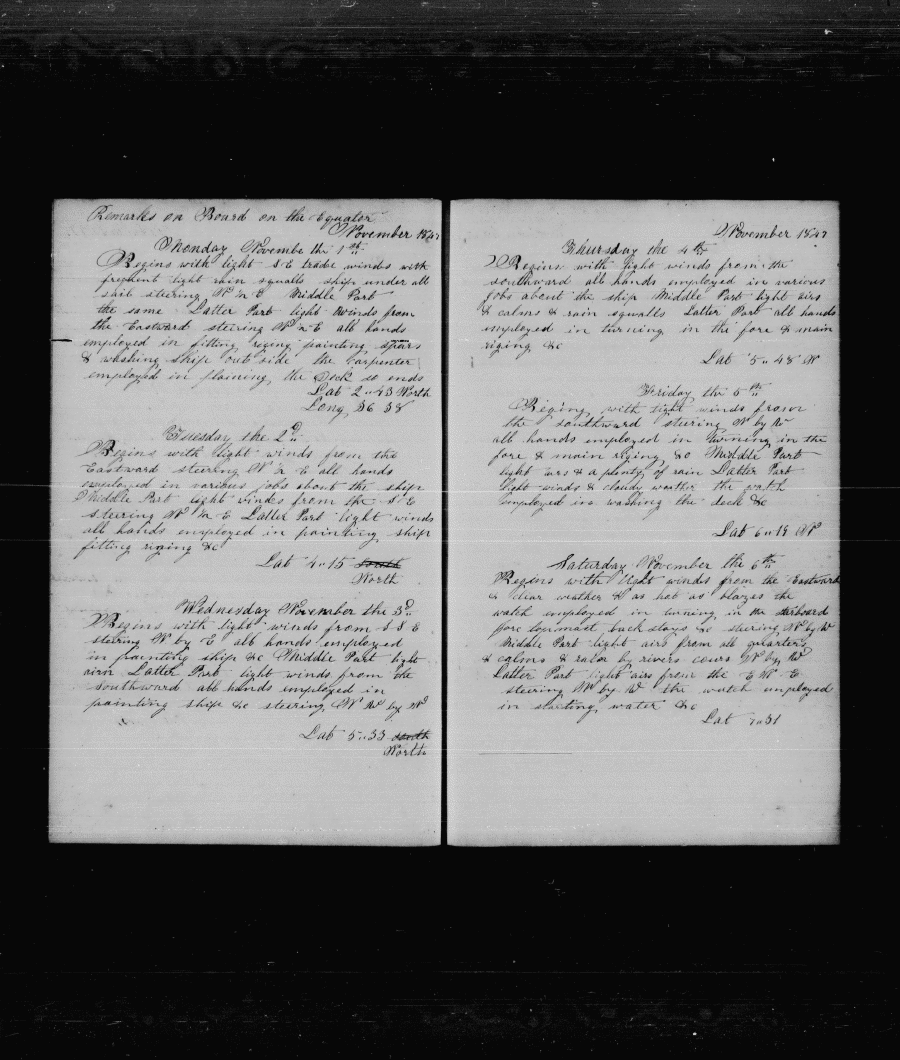 Remarks on Board on the Equator
November 1847
Monday Novembe the 1st
Begins with light S E trade winds with
frequent light rain squalls ship under all
sail steering N n E Middle Part
the same Latter Part light winds from
the Eastward steering N n E all hands
employed in fitting riging painting spars
& washing ship out side the Carpenter
employed in plaining the Deck so ends
Lat 2 .. 43 North
Long 36 38
Tuesday the 2d
Begins with light winds from the
Eastward steering N n E all hands
employed in various jobs about the ship
Middle Part light winds from the S E
steering N n E Latter Part light winds
all hands employed in painting ship
fitting riging &c
Lat 4 .. 15 south
North
Wednesday November the 3d
Begins with light winds from S S E
steering N by E all hands employed
in painting ship &c Middle Part light
airs Latter Part light winds from the
Southward all hands employed in
painting ship &c steering N W by N
Lat 5 .. 33 south
North
November 1847
Thursday the 4th
Begins with light winds from the
southward all hands employed in various
jobs about the ship Middle Part light airs
& calms & rain squalls Latter Part all hands
employed in turning in the fore & main
riging &c
Lat 5 .. 48 N
Friday the 5th
Begins with light winds from
the southward steering N by W
all hands employed in turning in the
fore & main riging &c Middle Part
light airs & a plenty of rain Latter Part
light winds & cloudy weather the watch
employed in washing the deck &c
Lat 6 .. 19 N
Saturday November the 6th
Begins with light winds from the Eastward
& clear weather & as hot as blazes the
watch employed in turning in the starboard
fore topmast back stays &c steering N by W
Middle Part light airs from all quarters
& calms & by cours N by W
Latter Part light airs from the E N E
steering N by W the watch employed
in starting water &c
Lat 7 .. 31